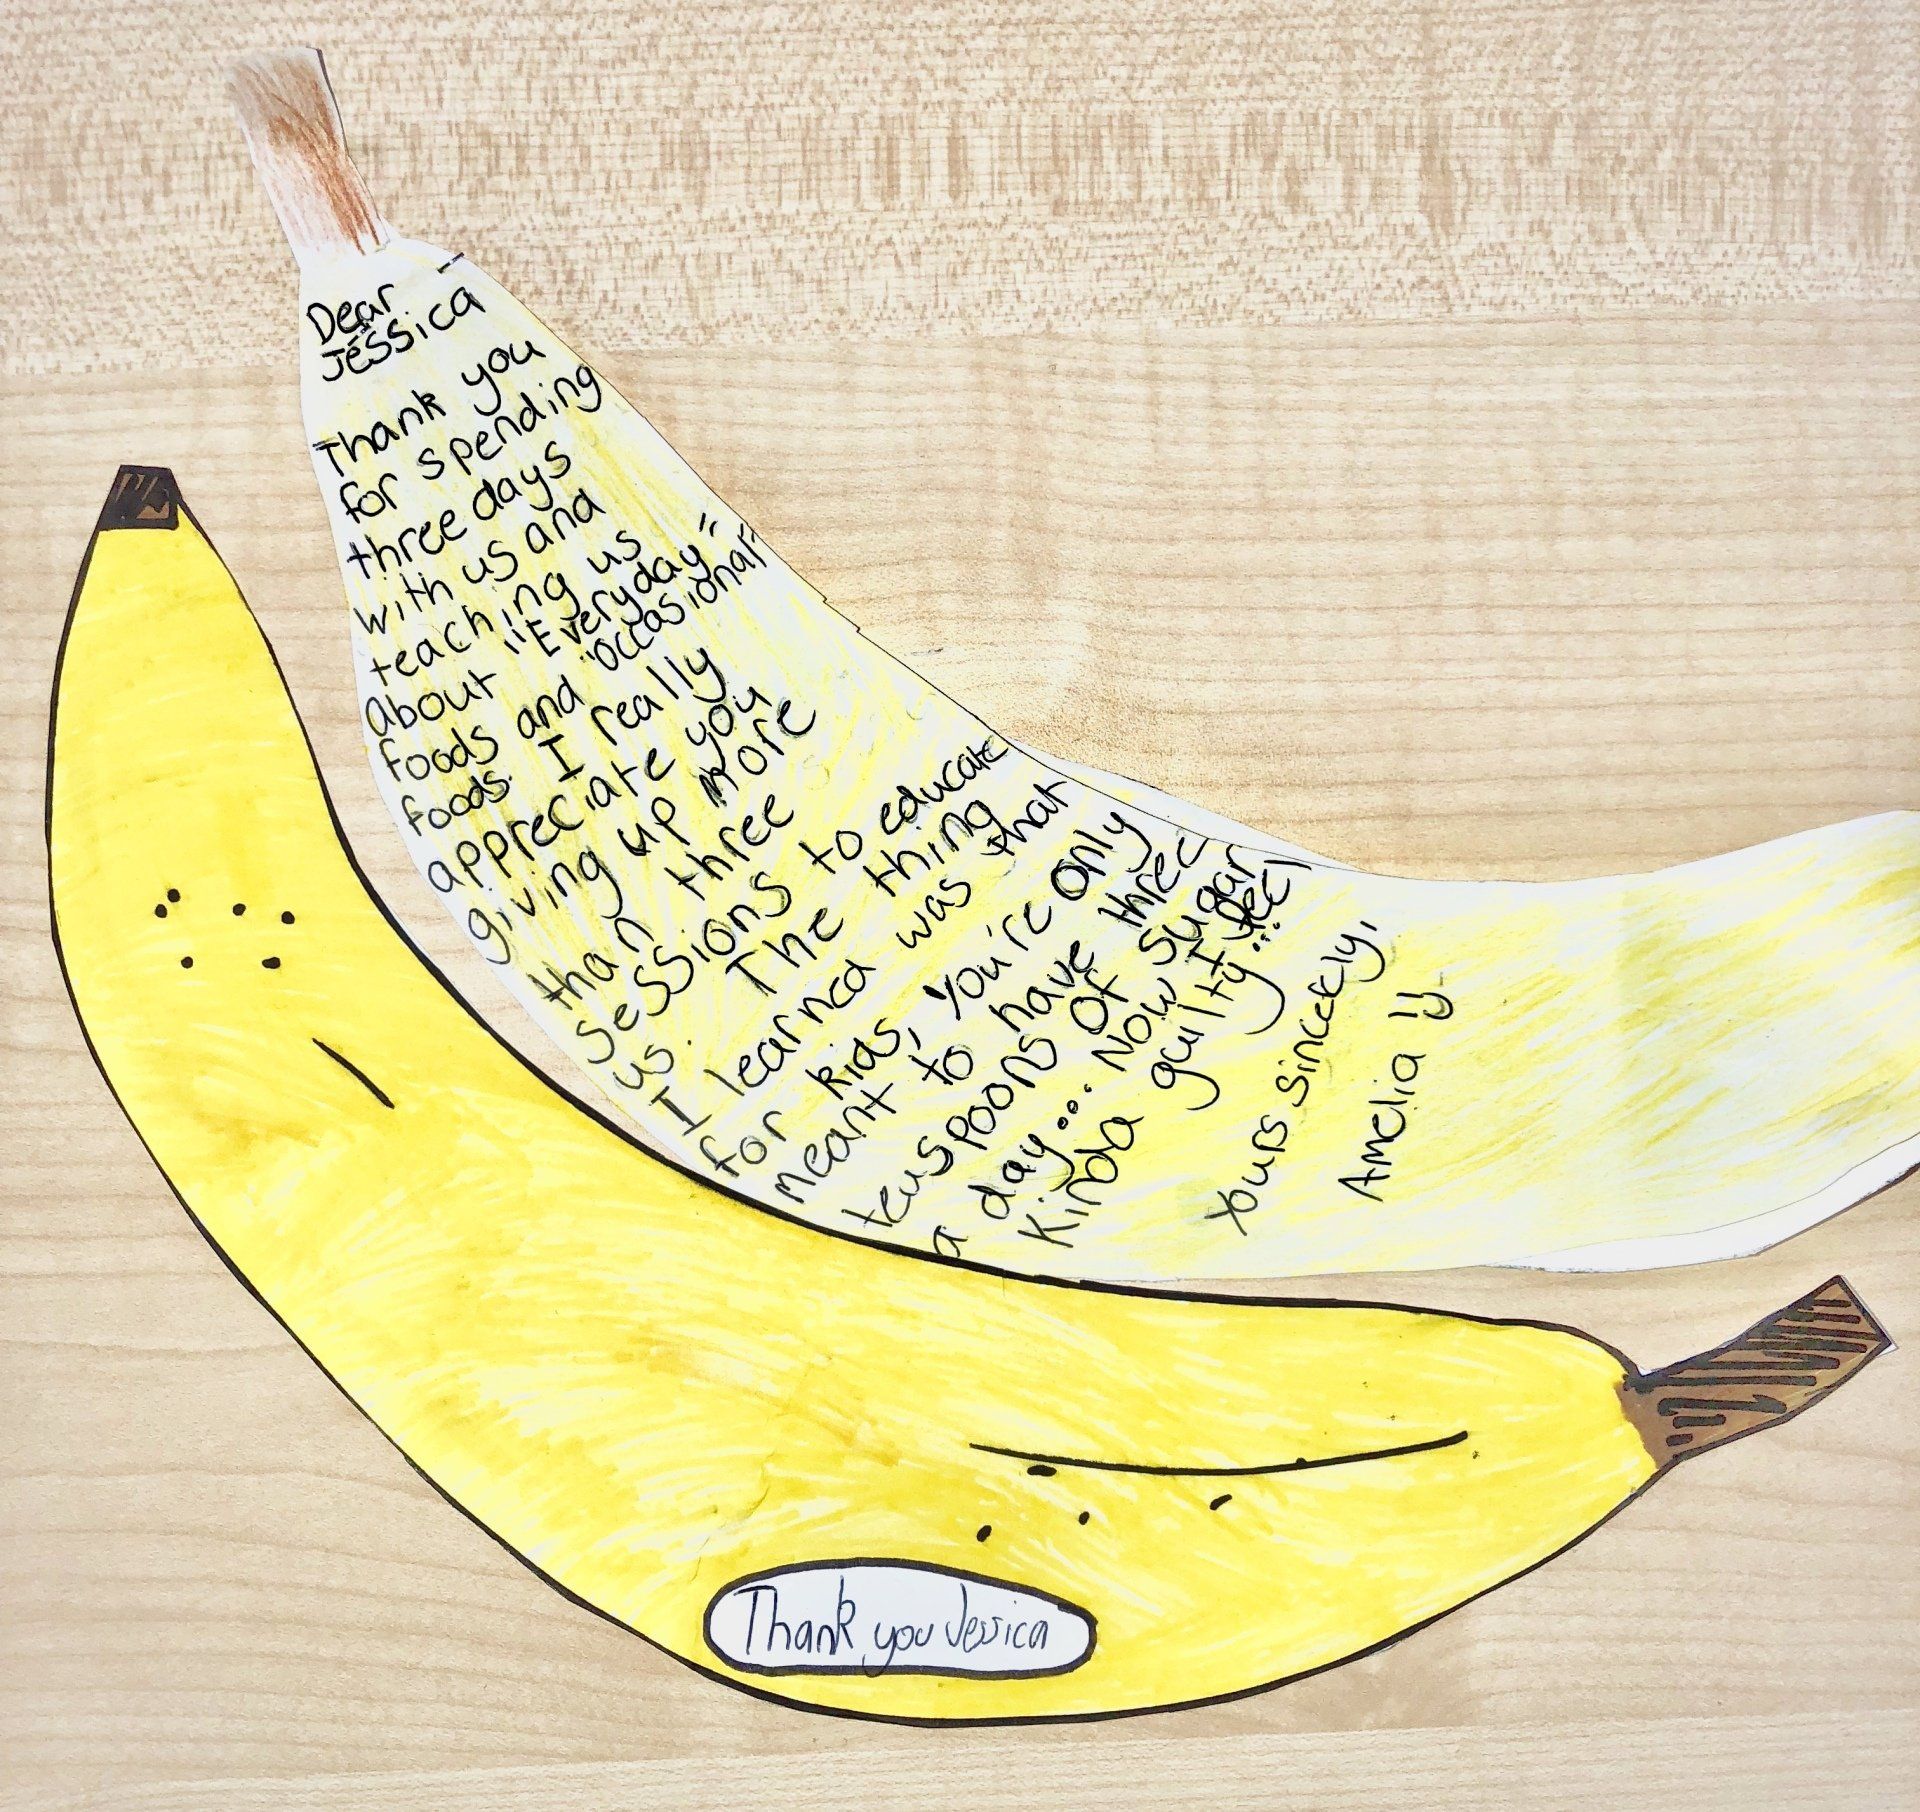 Dear
Jessica
Thank you
for spending
three days
with us and
teaching us
about "Everyday"
foods and "Occasional"
foods. I really
appreciate you
giving up more
than three
sessions to educate
us. The thing
I learned was that
for kids, you're only
meant to have three
teaspoons of sugar
a day... Now I feel
Kinda guilty...
Yours Sincerely,
Amelia
Thank you Jessica